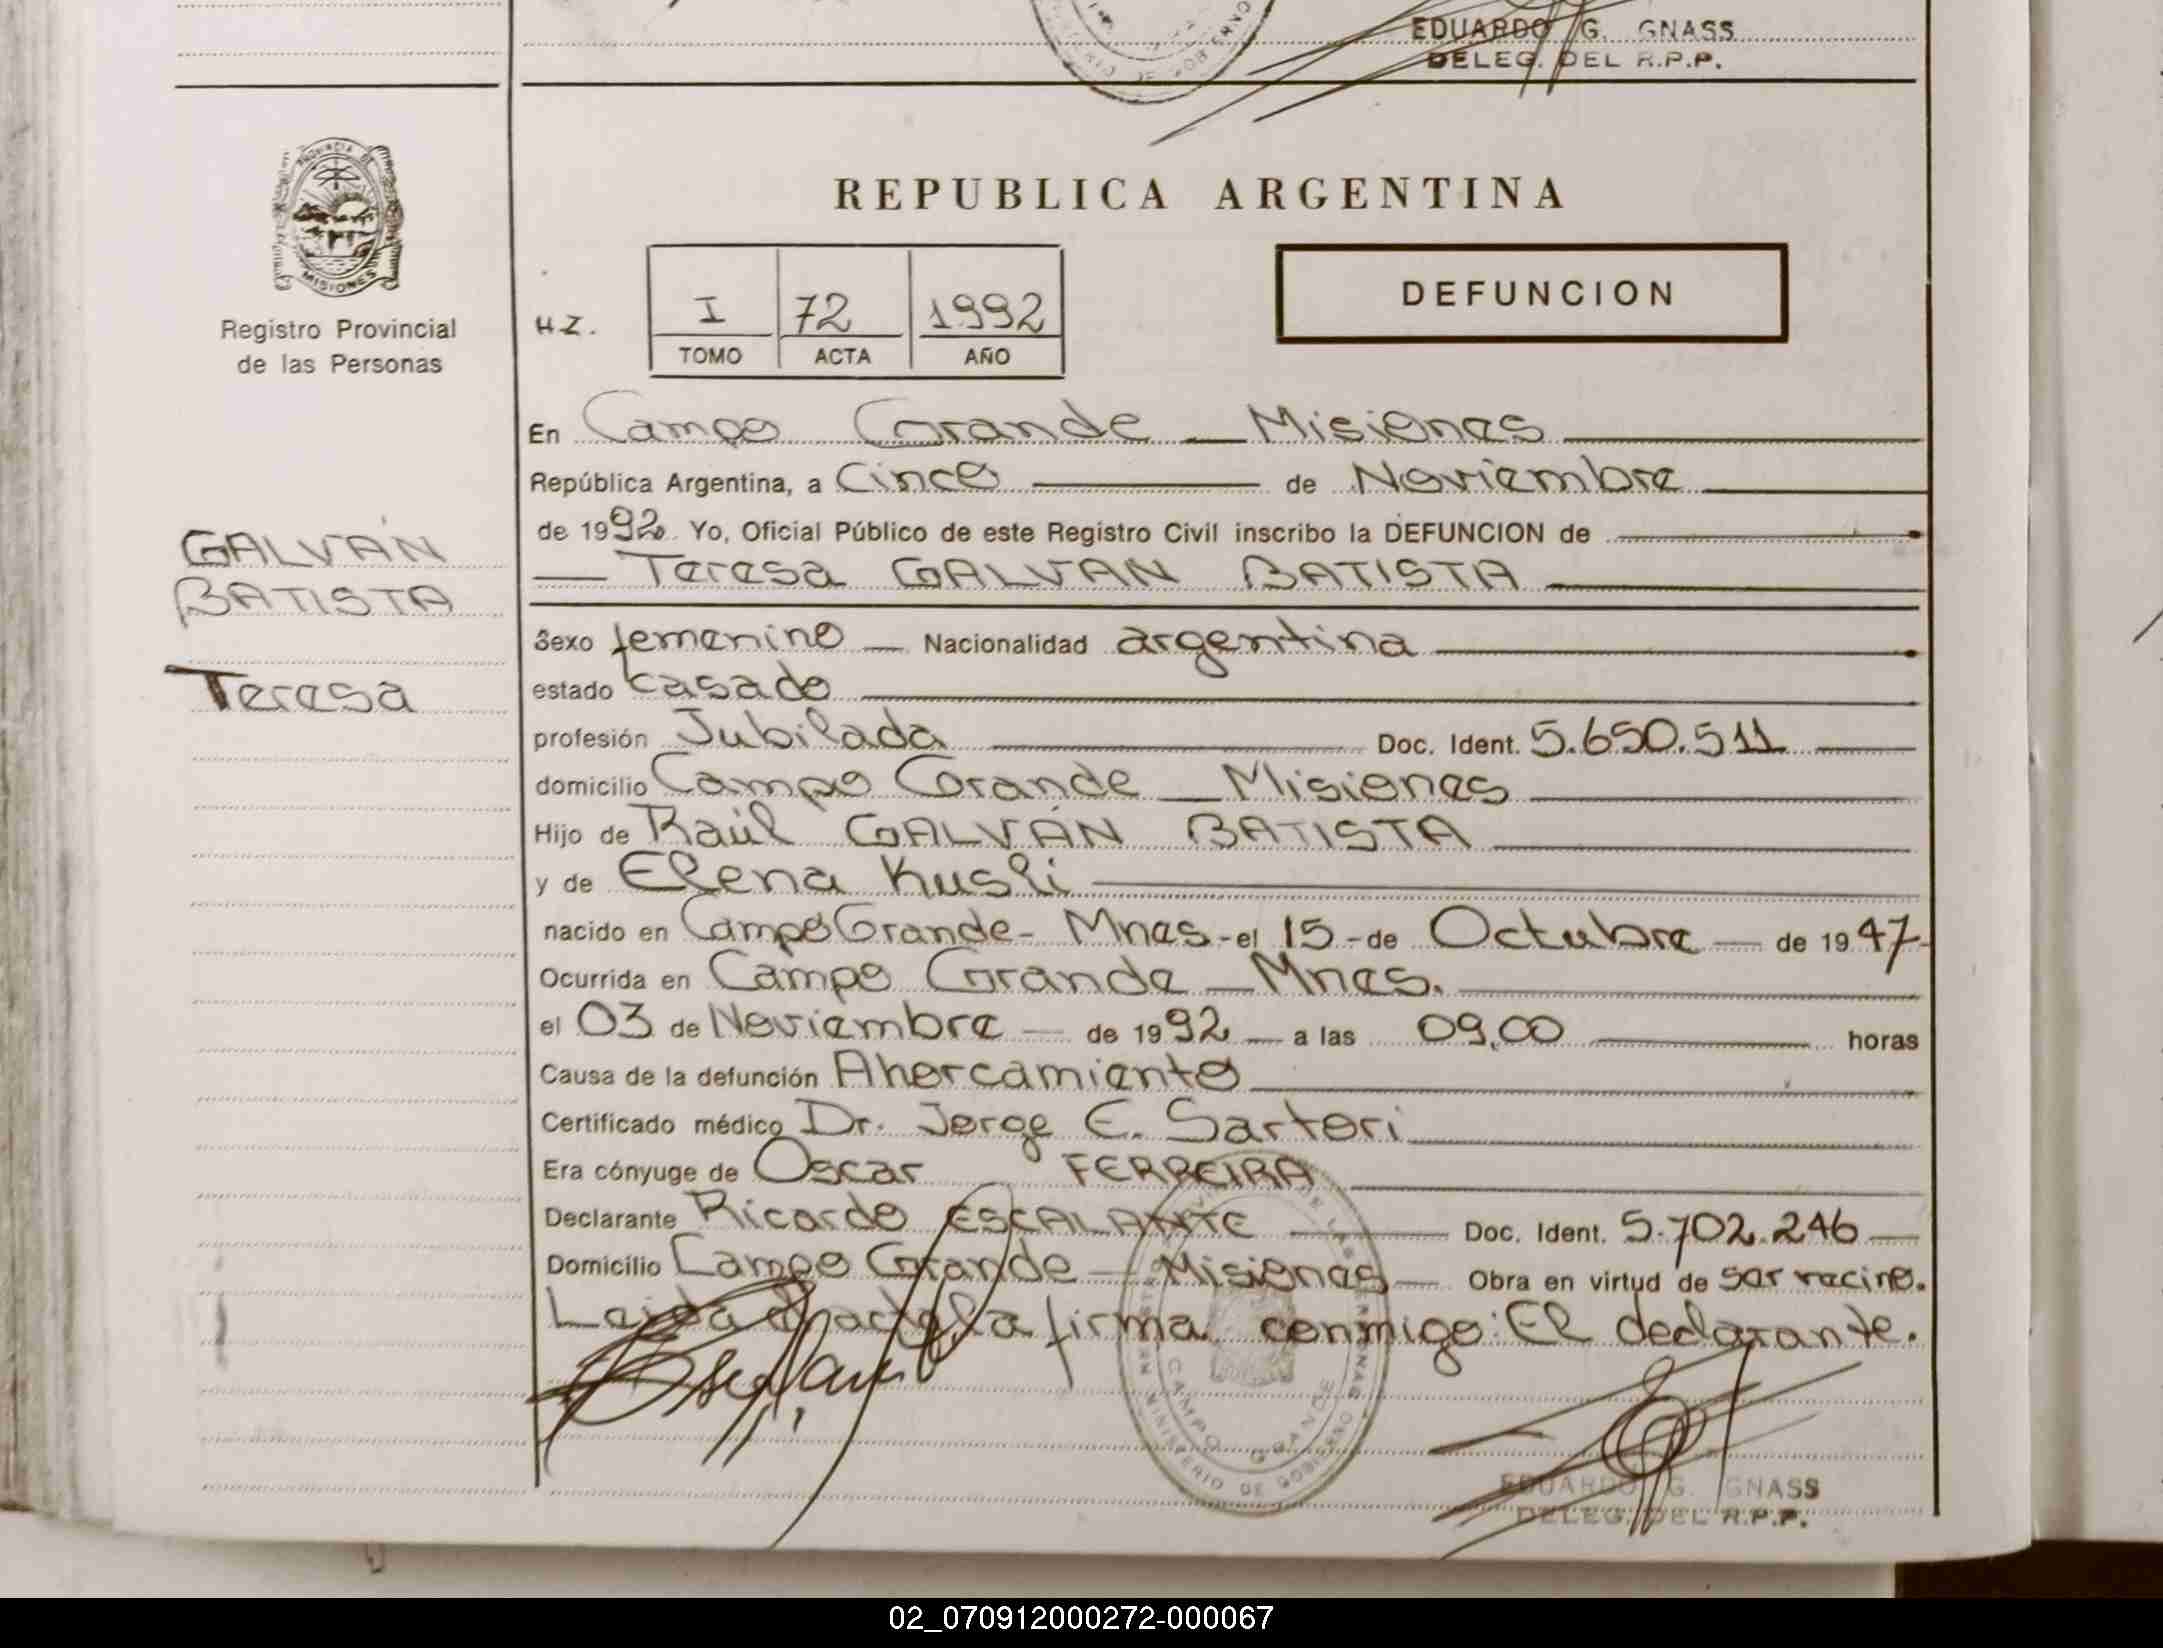 EDUARDO G. GNASS
DELEG. DEL R.P.P.
PROVINCIA DE
MISIONES
Registro Provincial
de las Personas
REPUBLICA ARGENTINA
H.Z.
I 72 1992
TOMO ACTA AÑO
DEFUNCION
En Campo Grande — Misiones
República Argentina, a Cinco — de Noviembre
de 1992. Yo, Oficial Público de este Registro Civil inscribo la DEFUNCION de
— Teresa GALVAN BATISTA
GALVÁN
BATISTA
Teresa
Sexo femenino — Nacionalidad argentina
estado casado
profesión Jubilada Doc. Ident. 5.650.511
domicilio Campo Grande — Misiones
Hijo de Raúl GALVÁN BATISTA
y de Elena Kusli
nacido en Campo Grande - Mnes - el 15 - de Octubre — de 1947-
Ocurrida en Campo Grande — Mnes.
el 03 de Noviembre — de 1992 — a las 09,00 horas
Causa de la defunción Ahorcamiento
Certificado médico Dr. Jorge E. Sartori
Era cónyuge de Oscar FERREIRA
Declarante Ricardo ESCALANTE — Doc. Ident. 5.702.246 —
Domicilio Campo Grande — Misiones — Obra en virtud de ser vecino.
Leida el acta la firma conmigo: El declarante.
CAMPO GRANDE
MINISTERIO DE GOBIERNO
EDUARDO G. GNASS
DELEG. DEL R.P.P.
02_070912000272-000067